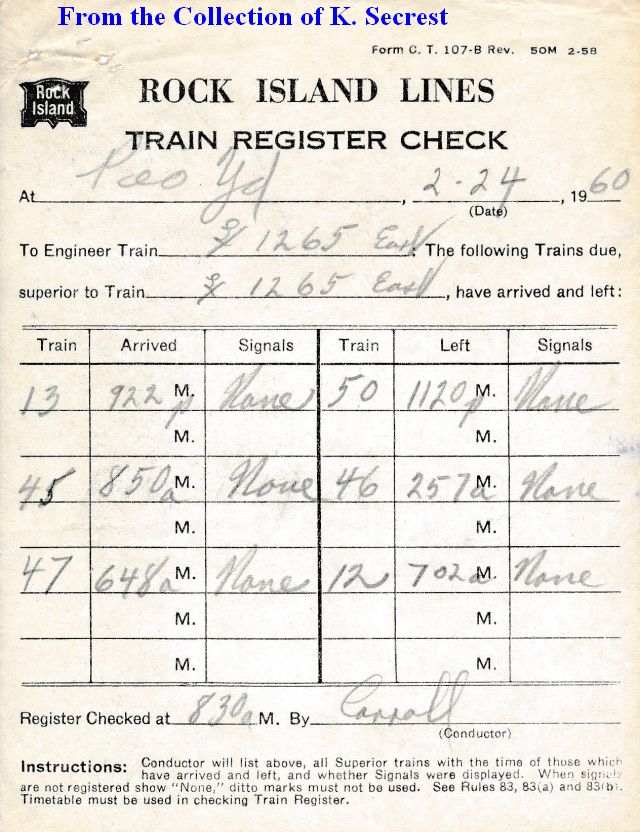 From the Collection of K. Secrest
Form C. T. 107-B Rev. 50M 2-58
Rock Island
ROCK ISLAND LINES
TRAIN REGISTER CHECK
At Peo Yd, 2-24, 1960
(Date)
To Engineer Train 1265 East: The following Trains due,
superior to Train 1265 East, have arrived and left:
Train Arrived Signals Train Left Signals
13 922 p M. None 50 1120 p M. None
M. M.
45 850a M. None 46 257a M. None
M. M.
47 648a M. None 12 702a M. None
M. M.
M. M.
Register Checked at 830a M. By Carroll
(Conductor)
Instructions: Conductor will list above, all Superior trains with the time of those which
have arrived and left, and whether Signals were displayed. When signals
are not registered show "None," ditto marks must not be used. See Rules 83, 83(a) and 83(b).
Timetable must be used in checking Train Register.